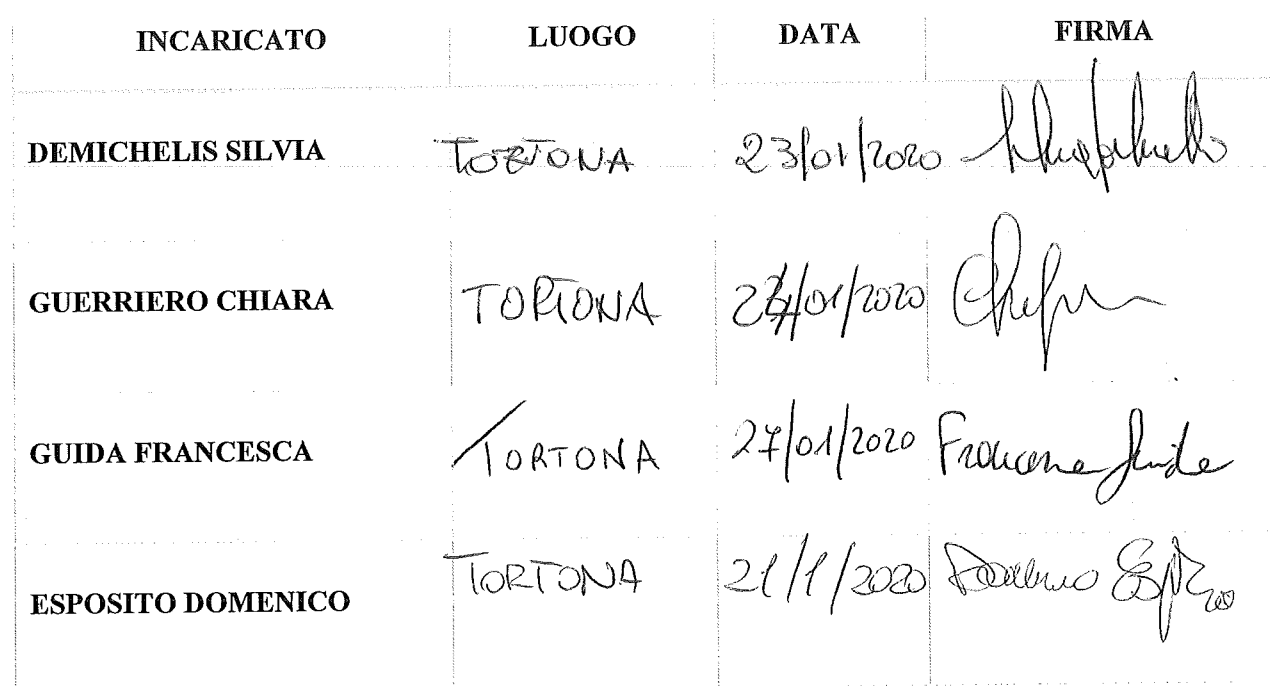 INCARICATO LUOGO DATA FIRMA
DEMICHELIS SILVIA TORTONA 23/01/2020
GUERRIERO CHIARA TORTONA /01/2020
GUIDA FRANCESCA TORTONA 27/01/2020 Francesca Guida
ESPOSITO DOMENICO TORTONA 21/1/2020 Domenico Esposito